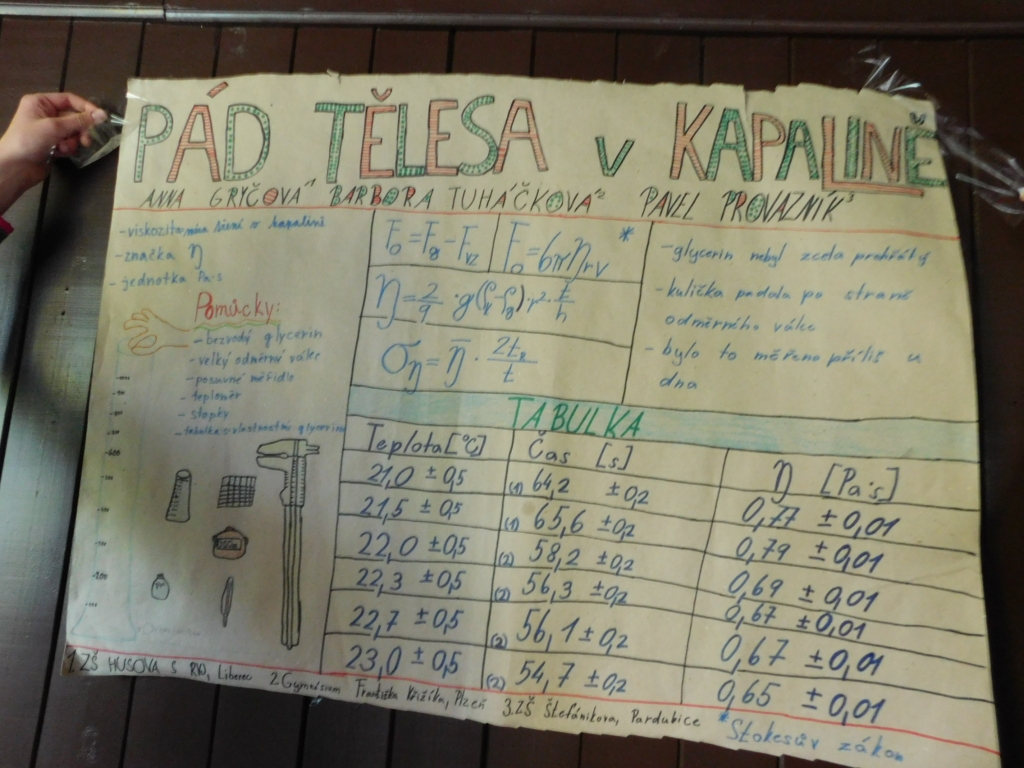 PÁD TĚLESA v KAPALINĚ
ANNA GRYČOVÁ¹ BARBORA TUHÁČKOVÁ² PAVEL PROVAZNÍK³
- viskozita, míra tření v kapalině
- značka η
- jednotka Pa·s
Pomůcky:
- bezvodý glycerin
- velký odměrný válec
- posuvné měřidlo
- teploměr
- stopky
- tabulka s vlastnostmi glycerinu
F₀ = Fg - Fvz
F₀ = 6πηrv *
η = 2/9 · g(ρk - ρg) · r² · t/h
ση = η̄ · 2tR/t
- glycerin nebyl zcela prohřátý
- kulička padala po straně
odměrného válce
- bylo to měřeno příliš u
dna
TABULKA
Teplota [°C] Čas [s] η [Pa·s]
21,0 ± 0,5 (1) 64,2 ± 0,2 0,77 ± 0,01
21,5 ± 0,5 (1) 65,6 ± 0,2 0,79 ± 0,01
22,0 ± 0,5 (2) 58,2 ± 0,2 0,69 ± 0,01
22,3 ± 0,5 (2) 56,3 ± 0,2 0,67 ± 0,01
22,7 ± 0,5 (2) 56,1 ± 0,2 0,67 ± 0,01
23,0 ± 0,5 (2) 54,7 ± 0,2 0,65 ± 0,01
1 ZŠ HUSOVA, Liberec 2. Gymnásium Františka Křižíka, Plzeň 3. ZŠ Štefánikova, Pardubice
* Stokesův zákon